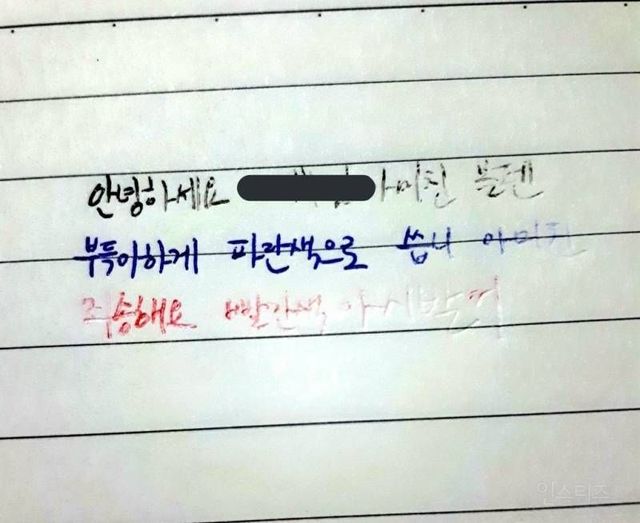 안녕하세요 아미친 볼펜
부득이하게 파란색으로 씁니 아미친
죄송해요 빨간색 아시박
인스티즈